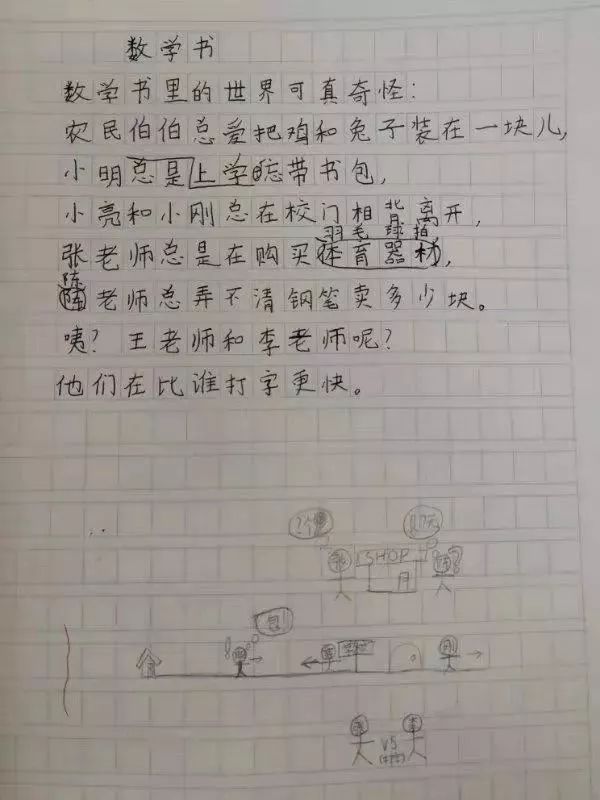 数学书
数学书里的世界可真奇怪：
农民伯伯总爱把鸡和兔子装在一块儿，
小明总是上学忘带书包，
小亮和小刚总在校门相背离开，
羽毛球拍
张老师总是在购买体育器材，
陈
老师总弄不清钢笔卖多少块。
咦？王老师和李老师呢？
他们在比谁打字更快。
SHOP
包
VS